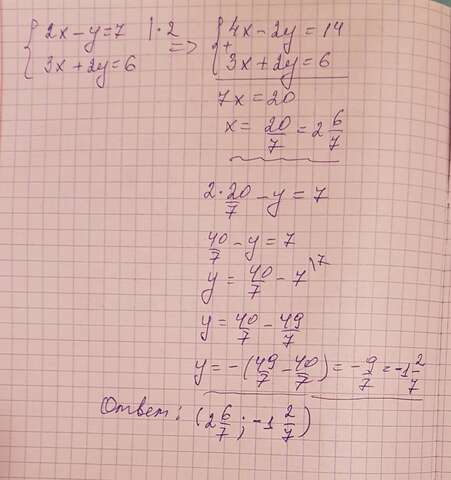 {2x-y=7 |·2 => {4x-2y=14
{3x+2y=6 + {3x+2y=6
7x=20
x=20/7=2 6/7
2·20/7-y=7
40/7-y=7
y=40/7-7\7
y=40/7-49/7
y=-(49/7-40/7)=-9/7=-1 2/7
Ответ: (2 6/7; -1 2/7)